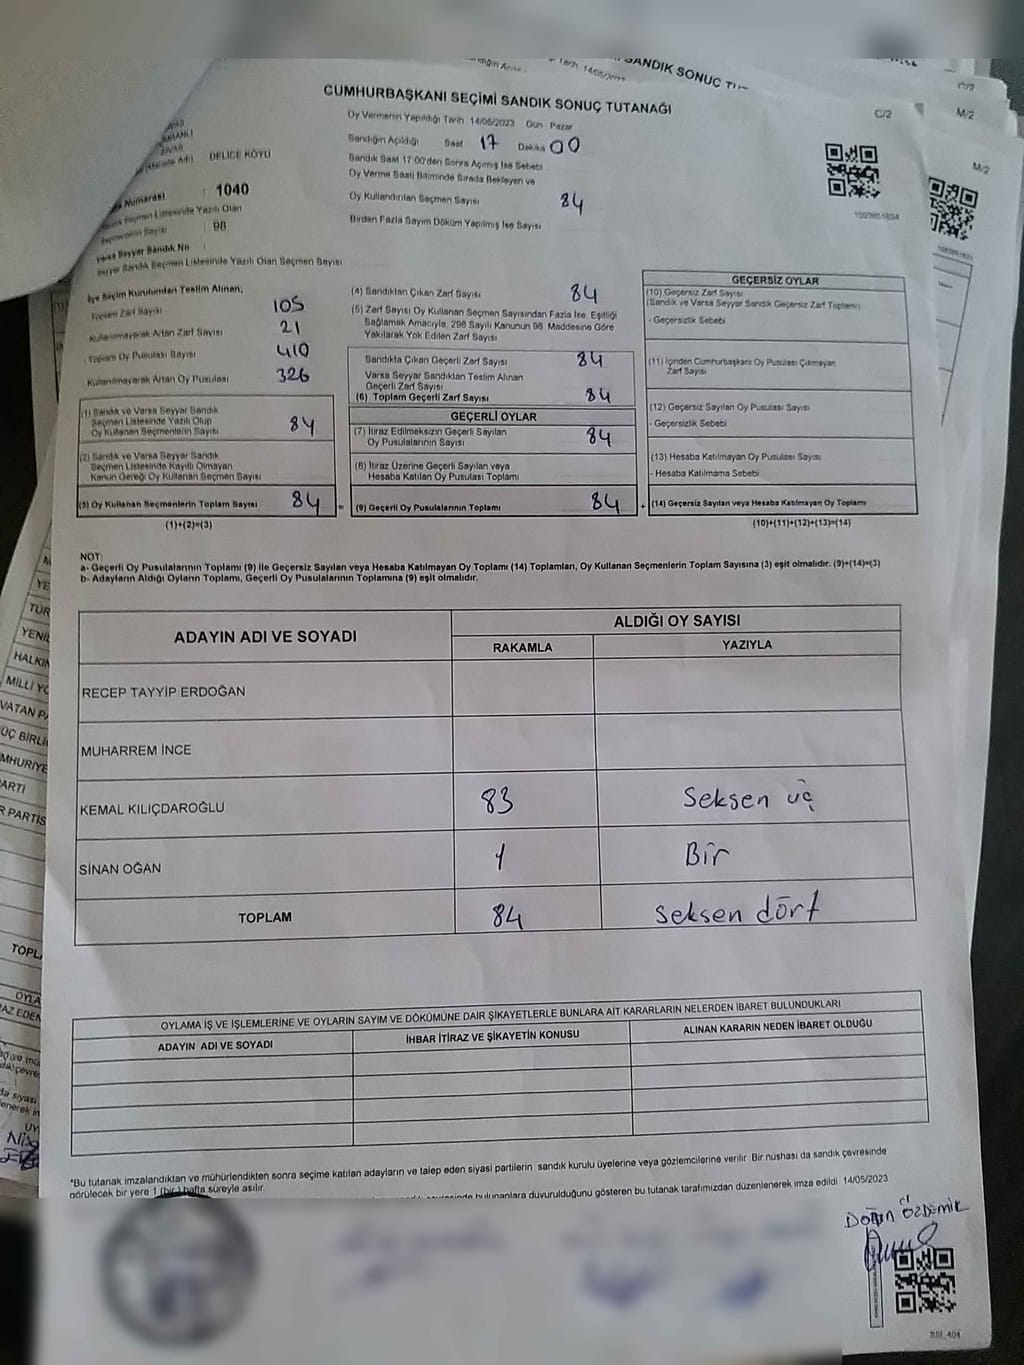 SANDIK SONUÇ
Tarih 14/05/2023
C/2
M/2
CUMHURBAŞKANI SEÇİMİ SANDIK SONUÇ TUTANAĞI
C/2
M/2
Oy Vermenin Yapıldığı Tarih 14/05/2023 Gün Pazar
Sandığın Açıldığı Saat 17 Dakika 00
DELİCE KÖYÜ
Sandık Saat 17:00'den Sonra Açılmış İse Sebebi
Oy Verme Saati Bitiminde Sırada Bekleyen ve
Oy Kullandırılan Seçmen Sayısı 84
Birden Fazla Sayım Döküm Yapılmış İse Sayısı
Numarası : 1040
Seçmen Listesinde Yazılı Olan
Seçmenlerin Sayısı : 98
Varsa Seyyar Sandık No
Seyyar Sandık Seçmen Listesinde Yazılı Olan Seçmen Sayısı
İlçe Seçim Kurulundan Teslim Alınan;
Toplam Zarf Sayısı 105
Kullanılmayarak Artan Zarf Sayısı 21
Toplam Oy Pusulası Sayısı 410
Kullanılmayarak Artan Oy Pusulası 326
(1) Sandık ve Varsa Seyyar Sandık
Seçmen Listesinde Yazılı Olup
Oy Kullanan Seçmenlerin Sayısı 84
(2) Sandık ve Varsa Seyyar Sandık
Seçmen Listesinde Kayıtlı Olmayan
Kanun Gereği Oy Kullanan Seçmen Sayısı
(3) Oy Kullanan Seçmenlerin Toplam Sayısı 84 =
(1)+(2)=(3)
(4) Sandıktan Çıkan Zarf Sayısı 84
(5) Zarf Sayısı Oy Kullanan Seçmen Sayısından Fazla İse, Eşitliği
Sağlamak Amacıyla, 298 Sayılı Kanunun 98. Maddesine Göre
Yakılarak Yok Edilen Zarf Sayısı
Sandıkta Çıkan Geçerli Zarf Sayısı 84
Varsa Seyyar Sandıktan Teslim Alınan
Geçerli Zarf Sayısı
(6) Toplam Geçerli Zarf Sayısı 84
GEÇERLİ OYLAR
(7) İtiraz Edilmeksizin Geçerli Sayılan
Oy Pusulalarının Sayısı 84
(8) İtiraz Üzerine Geçerli Sayılan veya
Hesaba Katılan Oy Pusulası Toplamı
(9) Geçerli Oy Pusulalarının Toplamı 84 +
GEÇERSİZ OYLAR
(10) Geçersiz Zarf Sayısı
(Sandık ve Varsa Seyyar Sandık Geçersiz Zarf Toplamı)
- Geçersizlik Sebebi
(11) İçinden Cumhurbaşkanı Oy Pusulası Çıkmayan
Zarf Sayısı
(12) Geçersiz Sayılan Oy Pusulası Sayısı
- Geçersizlik Sebebi
(13) Hesaba Katılmayan Oy Pusulası Sayısı
- Hesaba Katılmama Sebebi
(14) Geçersiz Sayılan veya Hesaba Katılmayan Oy Toplamı
(10)+(11)+(12)+(13)=(14)
NOT:
a- Geçerli Oy Pusulalarının Toplamı (9) ile Geçersiz Sayılan veya Hesaba Katılmayan Oy Toplamı (14) Toplamları, Oy Kullanan Seçmenlerin Toplam Sayısına (3) eşit olmalıdır. (9)+(14)=(3)
b- Adayların Aldığı Oyların Toplamı, Geçerli Oy Pusulalarının Toplamına (9) eşit olmalıdır.
ADAYIN ADI VE SOYADI
ALDIĞI OY SAYISI
RAKAMLA YAZIYLA
RECEP TAYYİP ERDOĞAN
MUHARREM İNCE
KEMAL KILIÇDAROĞLU 83 Seksen üç
SİNAN OĞAN 1 Bir
TOPLAM 84 Seksen dört
OYLAMA İŞ VE İŞLEMLERİNE VE OYLARIN SAYIM VE DÖKÜMÜNE DAİR ŞİKAYETLERLE BUNLARA AİT KARARLARIN NELERDEN İBARET BULUNDUKLARI
ADAYIN ADI VE SOYADI İHBAR İTİRAZ VE ŞİKAYETİN KONUSU ALINAN KARARIN NEDEN İBARET OLDUĞU
*Bu tutanak imzalandıktan ve mühürlendikten sonra seçime katılan adayların ve talep eden siyasi partilerin sandık kurulu üyelerine veya gözlemcilerine verilir. Bir nüshası da sandık çevresinde
görülecek bir yere 1 (bir) hafta süreyle asılır.
bulunanlara duyurulduğunu gösteren bu tutanak tarafımızdan düzenlenerek imza edildi 14/05/2023
DOĞAN ÖZDEMİR